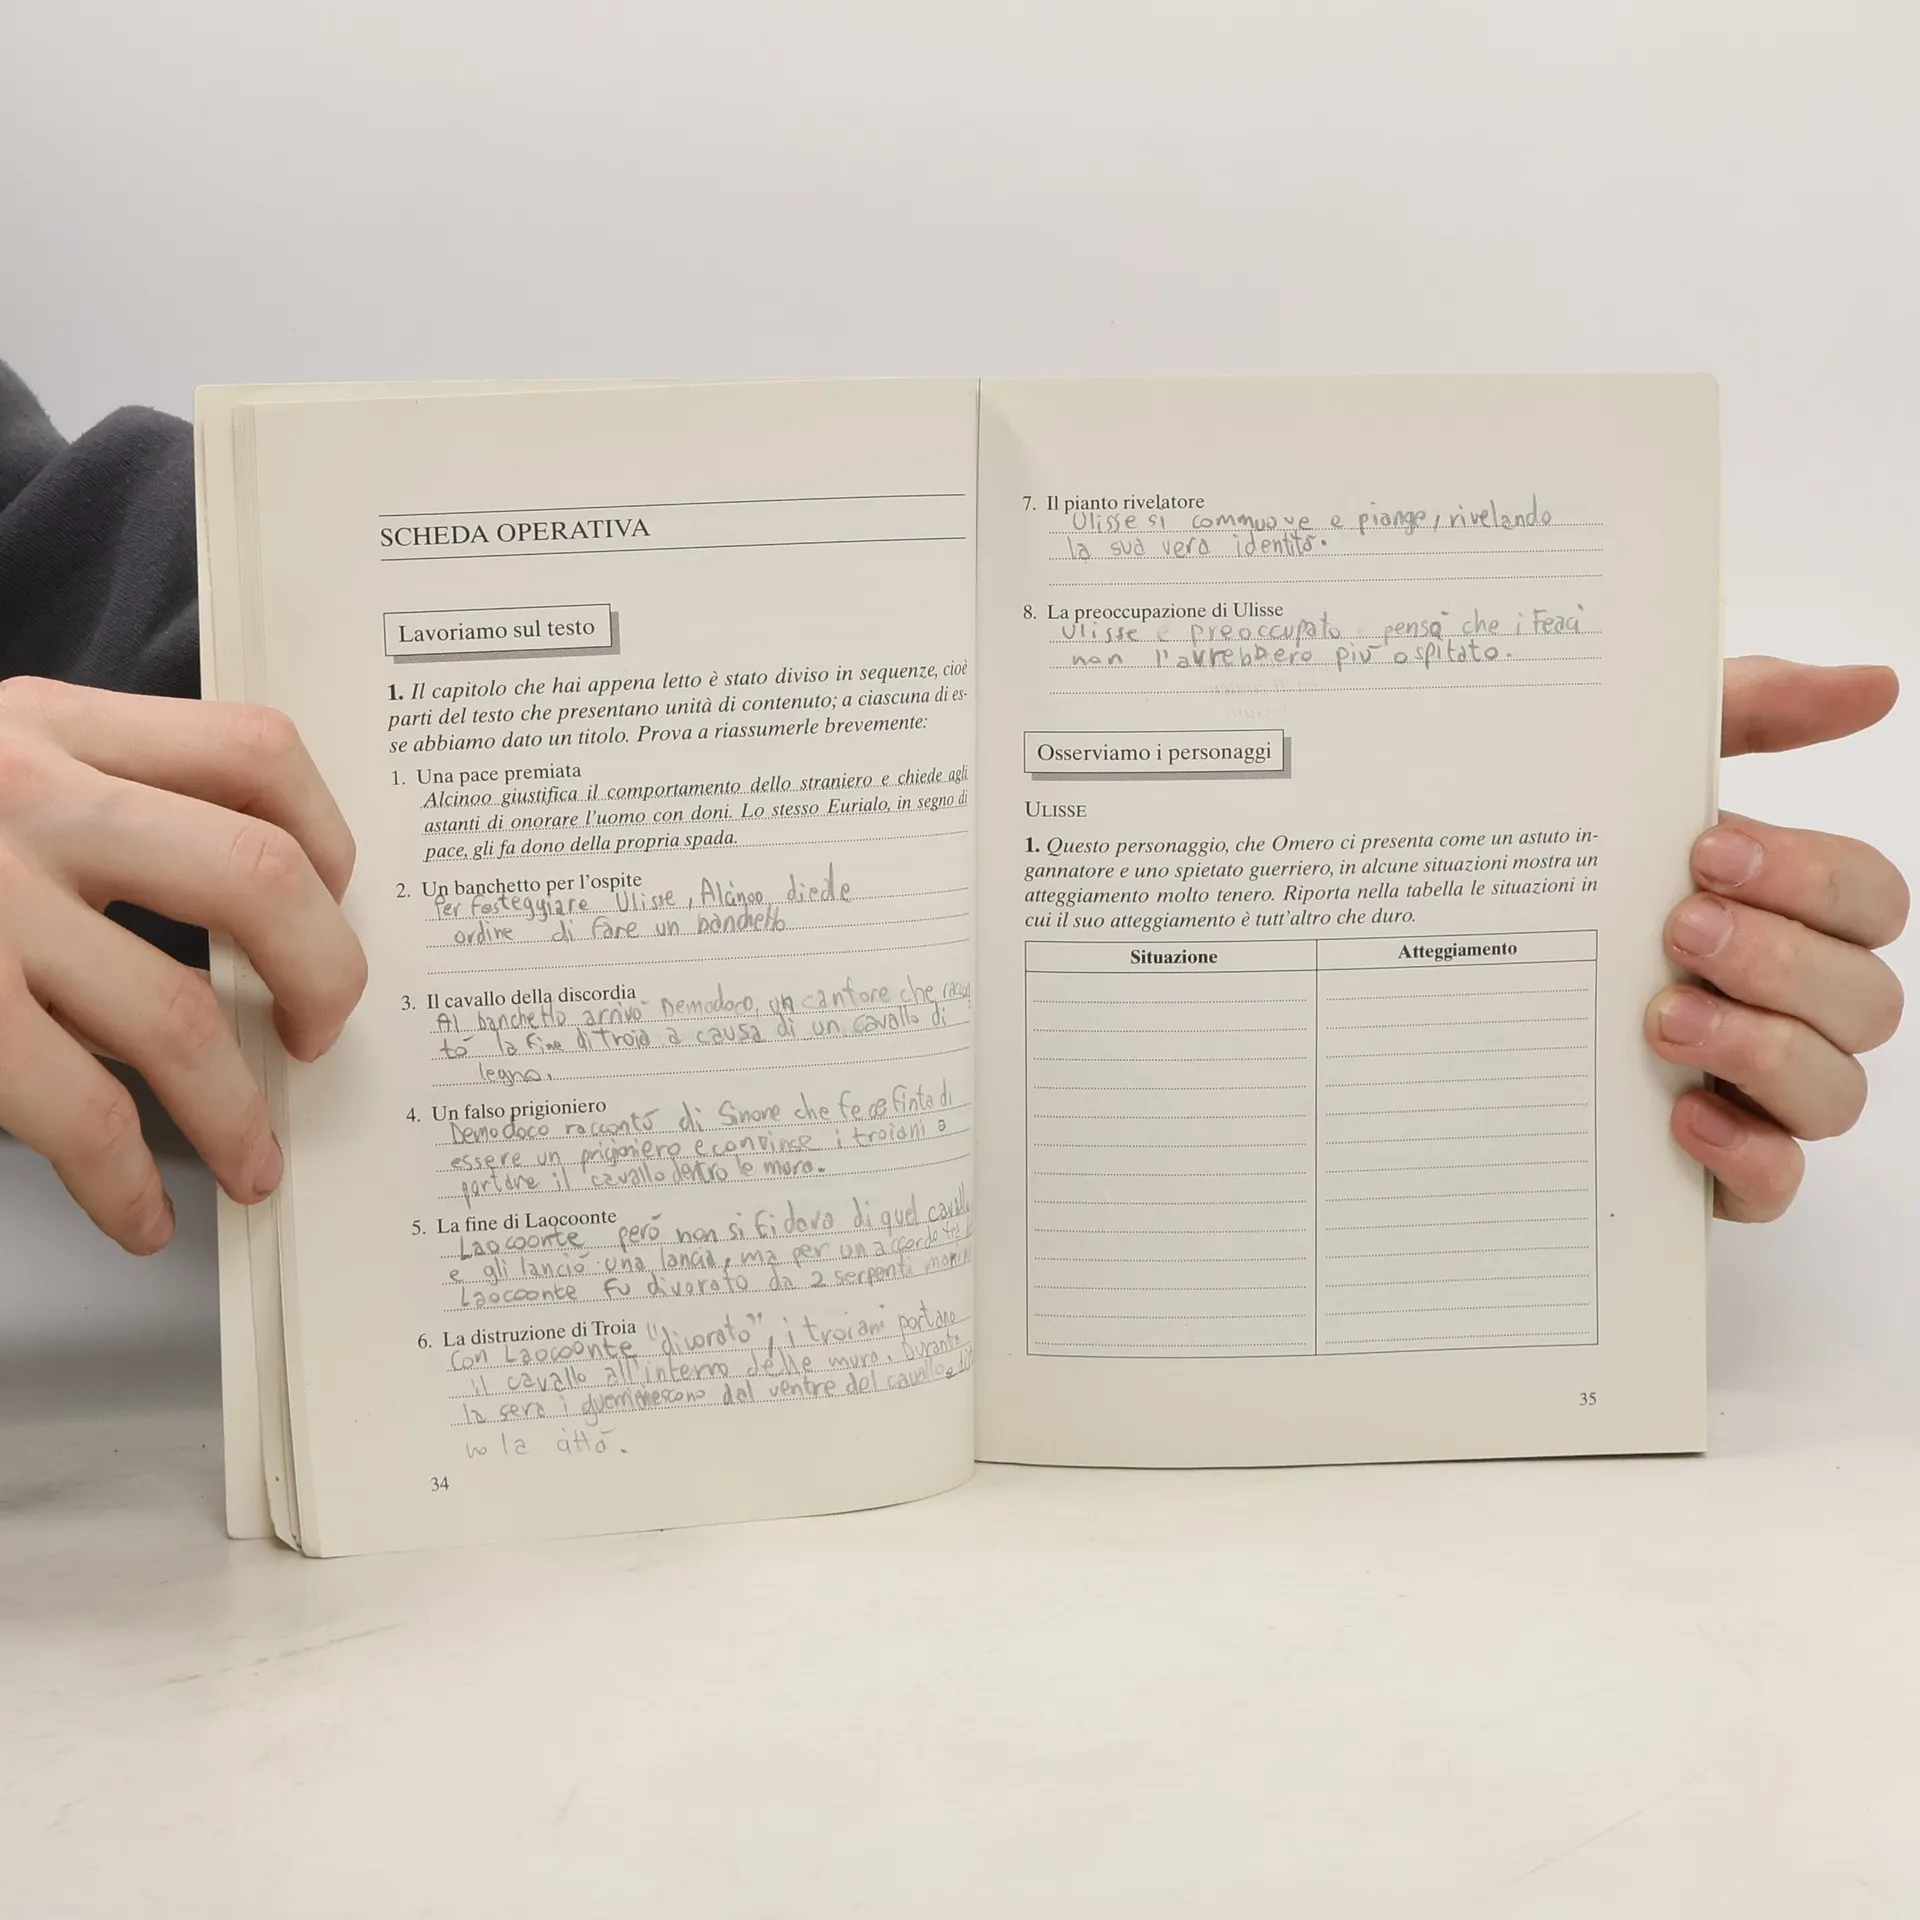 SCHEDA OPERATIVA
Lavoriamo sul testo
1. Il capitolo che hai appena letto è stato diviso in sequenze, cioè
parti del testo che presentano unità di contenuto; a ciascuna di es-
se abbiamo dato un titolo. Prova a riassumerle brevemente:
1. Una pace premiata
Alcinoo giustifica il comportamento dello straniero e chiede agli
astanti di onorare l'uomo con doni. Lo stesso Eurialo, in segno di
pace, gli fa dono della propria spada.
2. Un banchetto per l'ospite
Per festeggiare Ulisse, Alcinoo diede
ordine di fare un banchetto
3. Il cavallo della discordia
Al banchetto arrivò Demodoco, un cantore che raccon
tò la fine di Troia a causa di un cavallo di
legno.
4. Un falso prigioniero
Demodoco raccontò di Sinone che fece finta di
essere un prigioniero e convinse i troiani a
portare il cavallo dentro le mura.
5. La fine di Laocoonte
Laocoonte però non si fidava di quel cavallo
e gli lanciò una lancia, ma per un accordo tra
Laocoonte fu divorato da 2 serpenti
6. La distruzione di Troia
Con Laocoonte "divorato", i troiani portano
il cavallo all'interno delle mura. Durante
la sera i escono dal ventre del cavallo e
no la città.
34
7. Il pianto rivelatore
Ulisse si commuove e piange, rivelando
la sua vera identità.
8. La preoccupazione di Ulisse
Ulisse è preoccupato pensò che i Feaci
non l'avrebbero più ospitato.
Osserviamo i personaggi
ULISSE
1. Questo personaggio, che Omero ci presenta come un astuto in-
gannatore e uno spietato guerriero, in alcune situazioni mostra un
atteggiamento molto tenero. Riporta nella tabella le situazioni in
cui il suo atteggiamento è tutt'altro che duro.
Situazione Atteggiamento
35